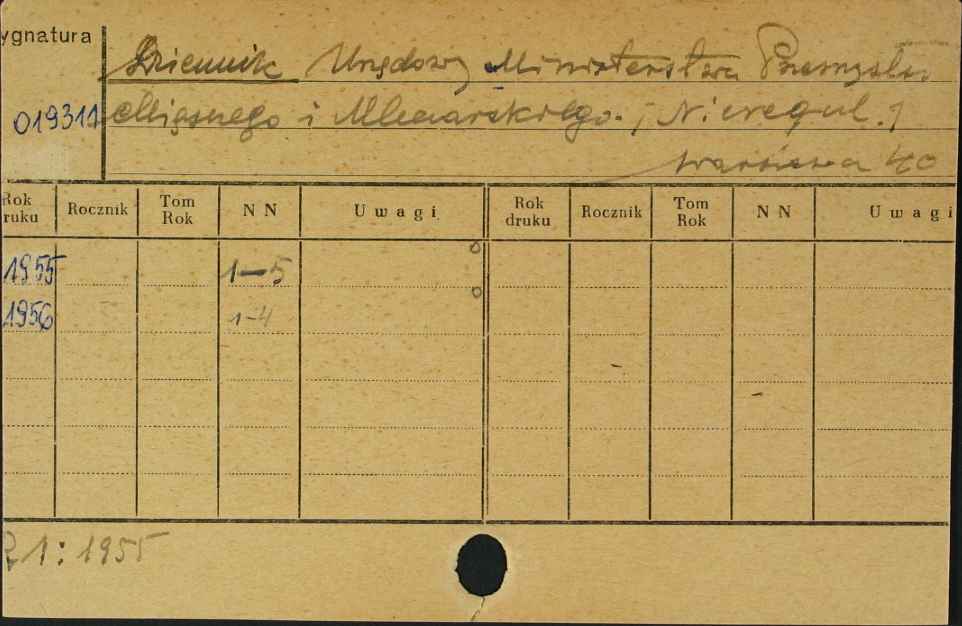 ygnatura
Dziennik Urzędowy Ministerstwa Przemysłu
019311 Mięsnego i Mleczarskiego. ; Nieregul. ;
Warszawa 40
Rok druku Rocznik Tom Rok NN Uwagi Rok druku Rocznik Tom Rok NN Uwagi
1955 1-5
1956 1-4
R. 1 : 1955